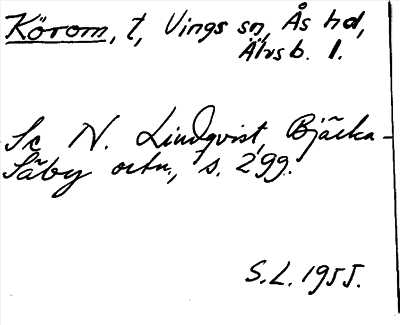 Körom, t, Vings sn, Ås hd,
Älvsb. l.
Se N. Lindqvist, Bjärka-
Säby ortn., s. 299.
S.L. 1955.